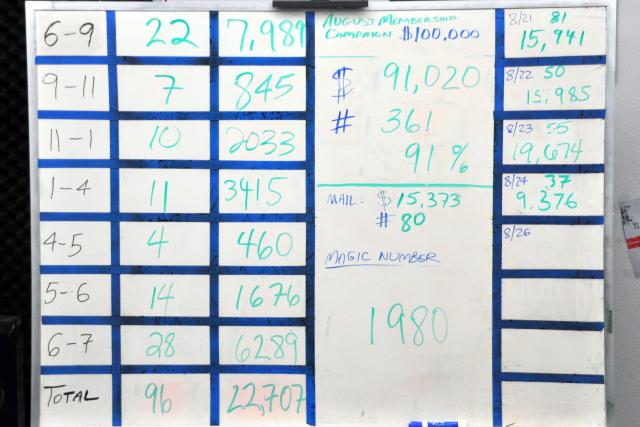 6-9 22 7,989
9-11 7 845
11-1 10 2033
1-4 11 3415
4-5 4 460
5-6 14 1676
6-7 28 6289
TOTAL 96 22,707
AUGUST MEMBERSHIP
CAMPAIGN $100,000
$ 91,020
# 361
91 %
MAIL: $ 15,373
# 80
MAGIC NUMBER
1980
8/21 81
15,941
8/22 50
15,985
8/23 55
19,674
8/24 37
9,376
8/26